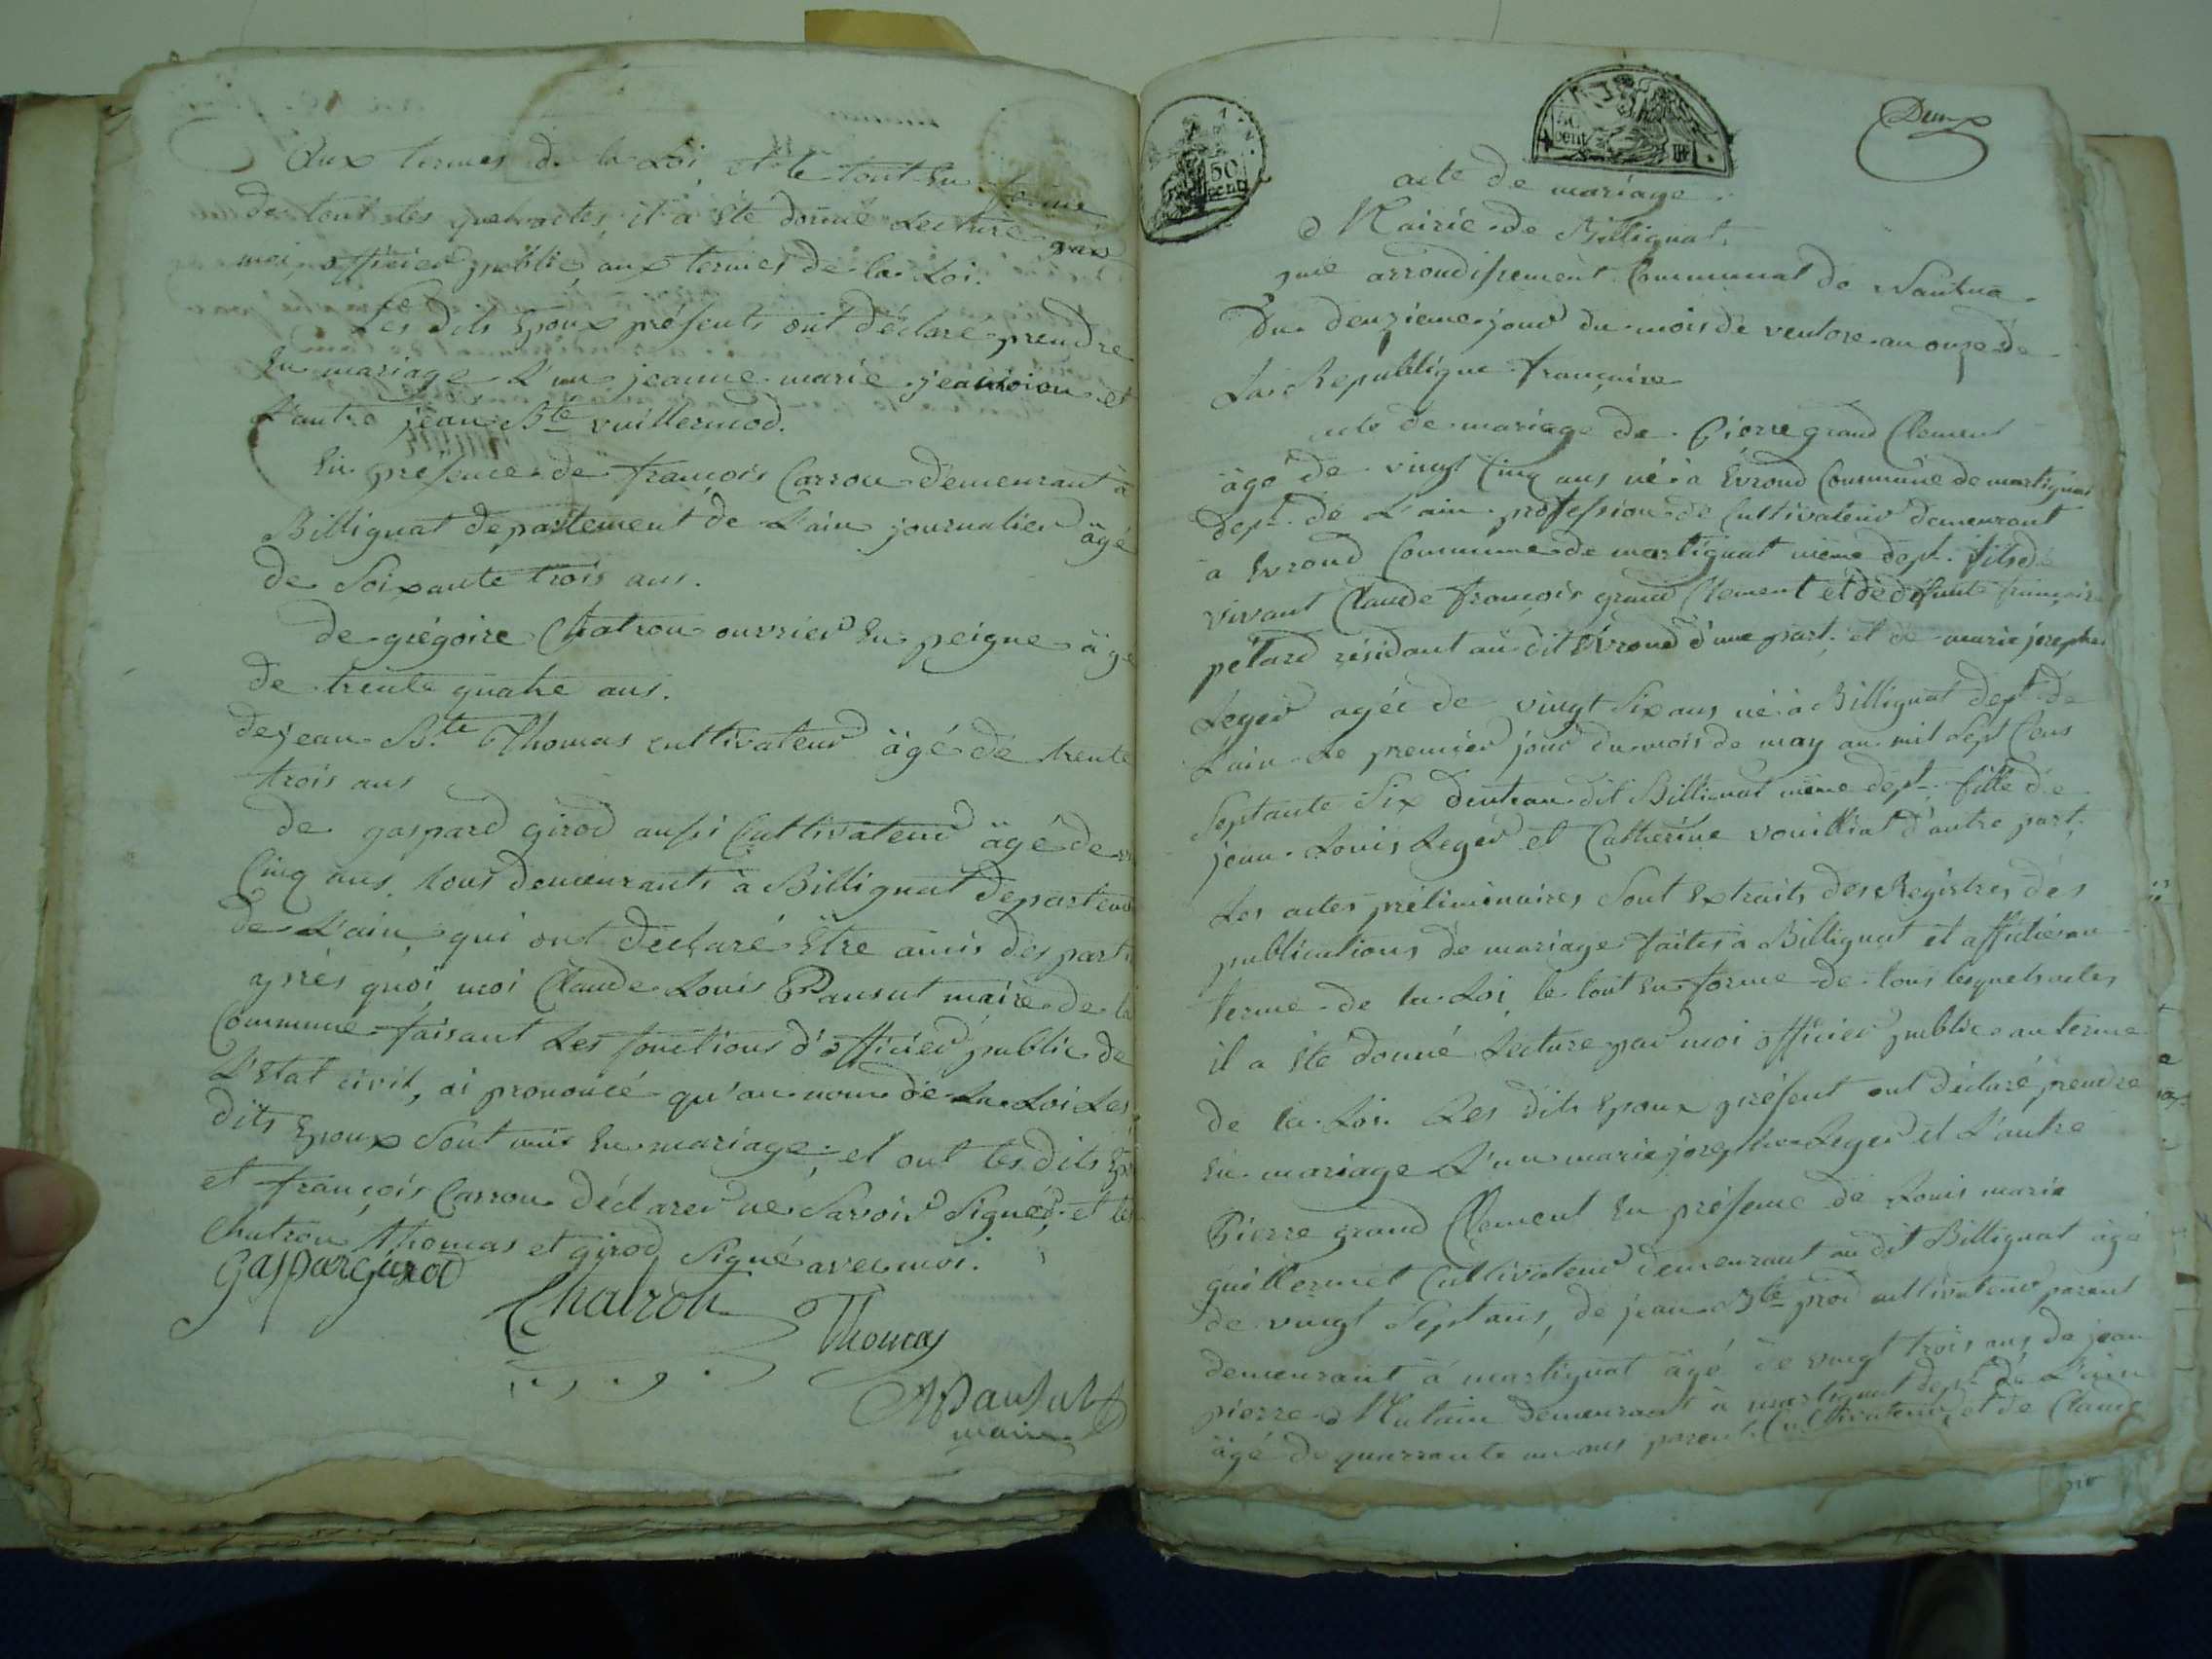 Aux termes de la Loi, et le tout en forme
de tout les quels actes, il a été donné Lecture par
moi, officier public, aux termes de la Loi.
Les dits Epoux présents ont déclaré prendre
En mariage L'un jeanne marie et
L'autre jean Bte vuillermod.
En présence de françois Carrou demeurant à
Billignat departement de L'ain journalier âgé
de Soixante trois ans.
de grégoire Chatrou ouvrier En peigne âgé
de trente quatre ans.
de jean Bte Thomas cultivateur âgé de trente
trois ans
de gaspard girod aussi Cultivateur âgé de
Cinq ans, tous demeurants à Billignat departem
de L'ain, qui ont déclaré Etre amis des part
après quoi, moi Claude Louis Pansut maire de la
Commune faisant Les fonctions d'officier public de
L'Etat civil, ai prononcé qu'au nom de La Loi Les
dits Epoux Sont unis En mariage, et ont les dits Ep
et françois Carrou déclarer ne Savoir Signer, et les
Chatrou, Thomas et girod Signé avec moi.
Gaspar Girod
Chatrou Thomas
Pansut
maire
Deux
50 cent
50 cent
acte de mariage.
Mairie de Billignat,
arrondissement Communal de Nantua.
Du deuzieme jour du mois de ventose an onze de
La Republique française
acte de mariage de Pierre grand Clement
âgé de vingt Cinq ans né à Evrond Commune de martignat
dept. de L'ain profession de Cultivateur demeurant
à Evrond Commune de martignat même dept. fils de
vivant Claude françois grand Clement et de défunte françoise
pétard résidant au dit Evrond d'une part, et de marie josephe
Leger agée de vingt Six ans né à Billignat dept de
L'ain Le premier jour du mois de may an mil Sept Cens
Septante Six dit Billignat même dept. fille de
jean Louis Leger et Catherine vouilliat d'autre part.
Les actes préliminaires Sont Extraits des Registres des
publications de mariage faites à Billignat et affichés au
terme de la Loi, le tout En forme de tous lesquels actes
il a Eté donné Lecture par moi officier public au terme
de la Loi. Les dits Epoux présent ont déclaré prendre
En mariage L'un marie josephe Leger et L'autre
Pierre grand Clement En présence de Louis marie
guillermet Cultivateur demeurant au dit Billignat âgé
de vingt Sept ans, de jean Bte prod cultivateur parent
demeurant à martignat âgé de vingt trois ans, de jean
pierre demeurant à martignat dept. de L'ain
âgé de quarrante un ans parent Cultivateur, et de Claude